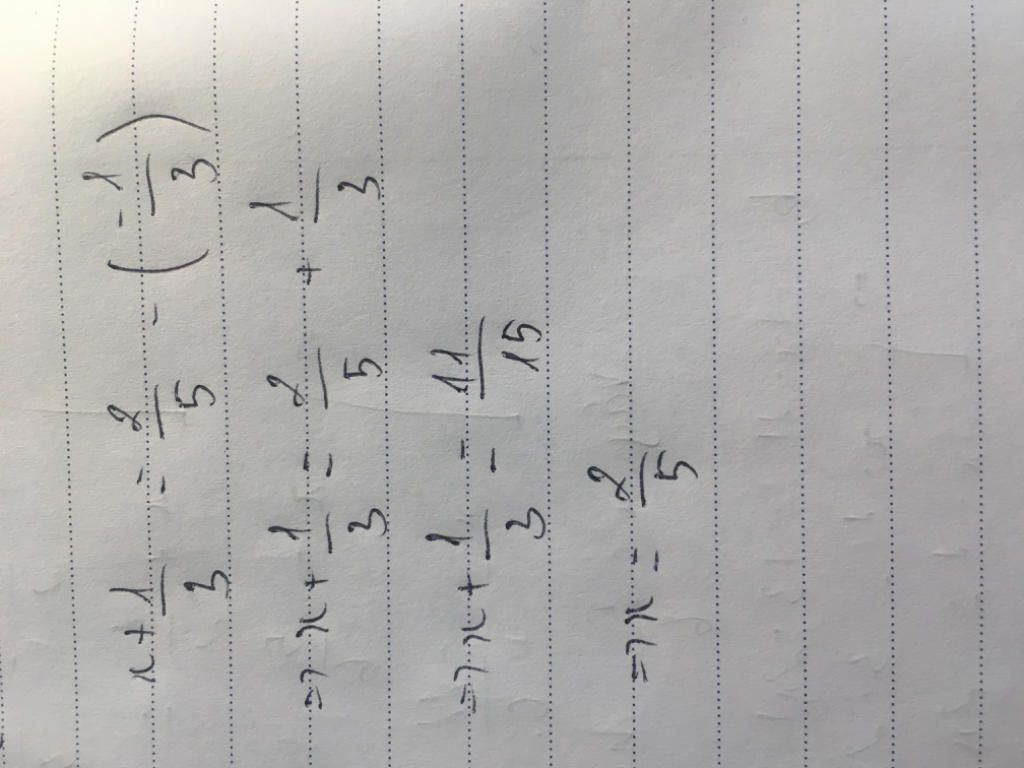 x + 1/3 = 2/5 - (-1/3)
=> x + 1/3 = 2/5 + 1/3
=> x + 1/3 = 11/15
=> x = 2/5